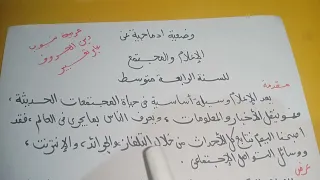 وضعية ادماجية عن
الإعلام والمجتمع
للسنة الرابعة متوسط
مقدمة
يعد الإعلام وسيلة أساسية في حياة المجتمعات الحديثة،
فهو ينقل الأخبار والمعلومات، ويعرف الناس بما يجري في العالم، فقد
أصبحنا اليوم نتابع كل الأحداث من خلال التلفاز والجرائد، والإنترنت،
ووسائل التواصل الإجتماعي.
عرض